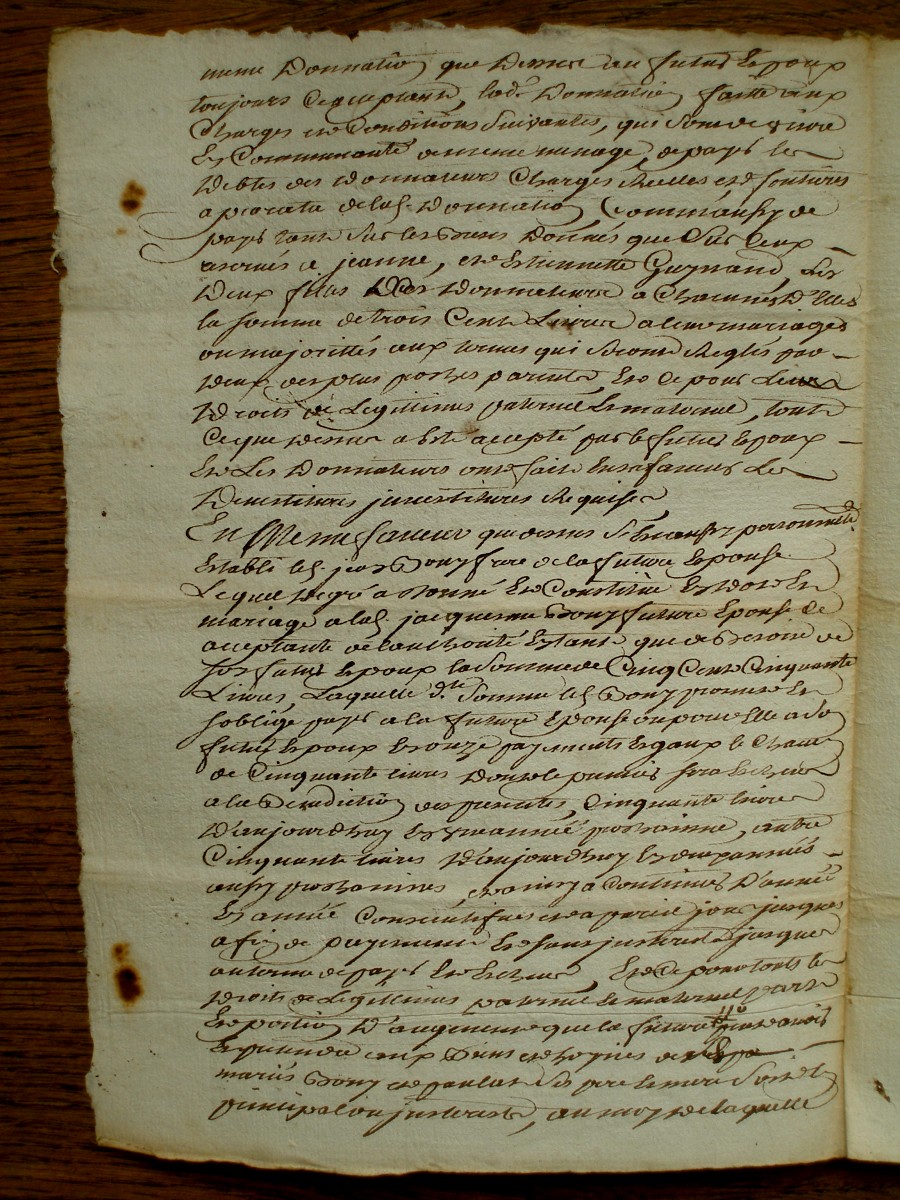 meme Donnation que Dessus au futur Epoux
toujours acceptant, lad. Donnation faite aux
Charges et Conditions Suivantes, qui Sont de vivre
En Communauté de meme menage, de payer les
Debtes des Donnateurs Charges Reelles et foncieres
a prorata de lad. Donnation, Comme aussy de
payer tant Sur les Biens Donnés que Sur Ceux
a jeanne, et Estiennette Guynand, Les
Deux filles Des Donnateurs a Chacune D'Elles
la somme de trois Cent Livres a leur mariages
ou majorittés aux termes qui Seront Reglés par
deux des plus proches parents, Et ce pour Leurs
Droits de Legittimes paternel Et maternel, tout
Ceque Dessus a Esté accepté par le futur Epoux
Et Les Donnateurs ont fait En sa faveur Les
Devestitures jnvestitures Requises
En Meme faveur que dessus S'Est aussy personnelle.
Establi led. jean Bony frere de la future Epouse
Lequel de gré a Donné Et Constitué En dot Et
mariage a lad. jacquemme Bony future Epouse
acceptante de l'authorité Estant que de Besoin de
son futur Epoux la Somme de Cinq Cent Cinquante
Livres, Laquelle d.te Somme led. Bony promet Et
s'oblige payer a la future Epouse ou pour Elle a Son
futur Epoux En onze payements Egaux le Chacun
de Cinquante livres Dont le premier sera
a la Benediction des presentes, Cinquante livres
D'aujourdhuy En Une année prochaine, autre
Cinquante livres D'aujourdhuy En deux années
aussy prochaines, et ainsy a Continuer D'année
En année Consecutifves et a pareil jour jusques
a fin de payement Et sans jnterest jusques
au terme de payer Et Echus, Et ce pour touts les
Droits de Legittimes paternel Et maternel part
Et portion D'augment que la future
Et prendre aux Biens et hoiries de
mariés Bony et Ses pere Et mere Soit En
principal ou jnterests, au moyen de laquelle